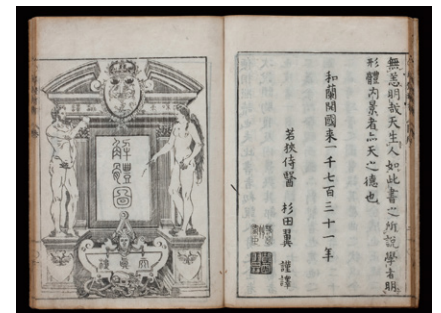 無恙明哉天生人如此書之所說學者明
形體內景者亦天之德也
和蘭開國來一千七百三十一年
若狹侍醫 杉田翼 謹譯
解體圖